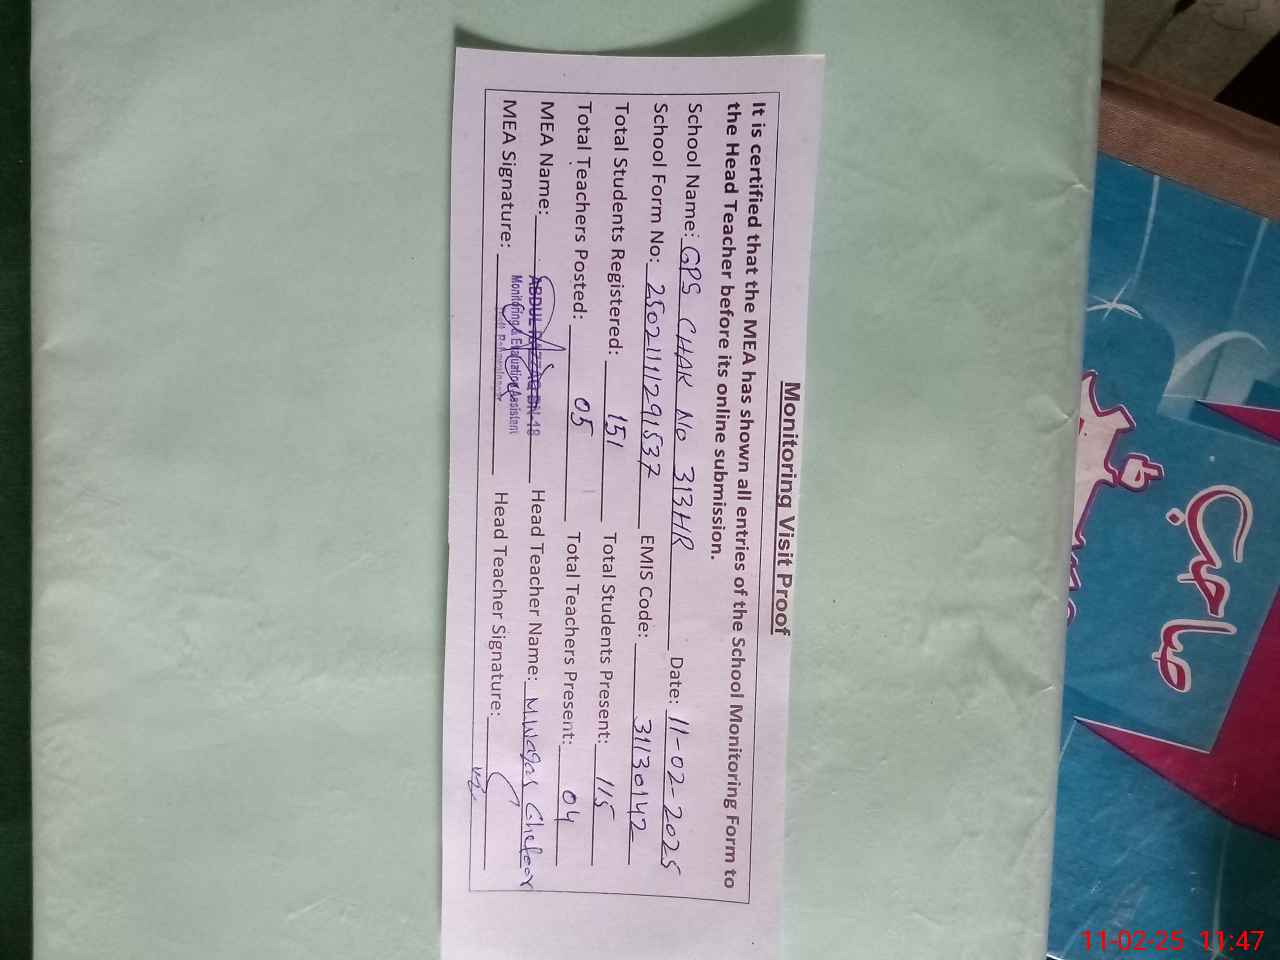 Monitoring Visit Proof
It is certified that the MEA has shown all entries of the School Monitoring Form to
the Head Teacher before its online submission.
School Name: GPS CHAK No 313HR Date: 11-02-2025
School Form No: 2502111291537 EMIS Code: 31130142
Total Students Registered: 151 Total Students Present: 115
Total Teachers Posted: 05 Total Teachers Present: 04
MEA Name: ABDUL RAZZAQ BN-48 Head Teacher Name: M.Waqas Ghafoor
Monitoring & Evaluation Assistant
MEA Signature: Head Teacher Signature:
صاحب
11-02-25 11:47